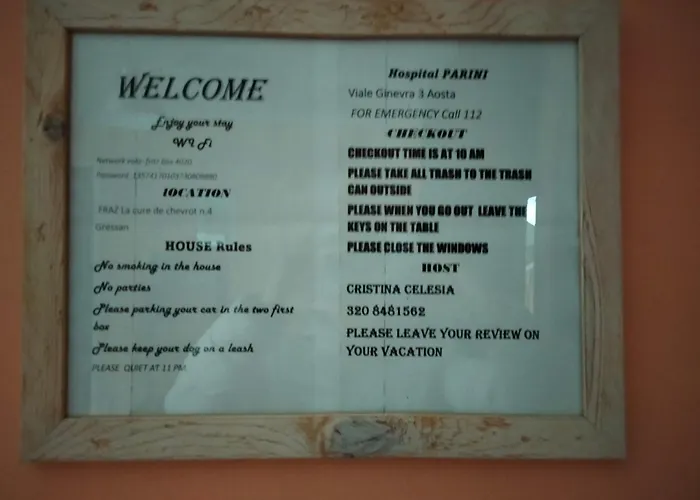 WELCOME
Enjoy your stay
Wi Fi
Password
LOCATION
FRAZ La cure de chevrot n.4
Gressan
HOUSE Rules
No smoking in the house
No parties
Please parking your car in the two first
box
Please keep your dog on a leash
PLEASE QUIET AT 11 PM
Hospital PARINI
Viale Ginevra 3 Aosta
FOR EMERGENCY Call 112
CHECKOUT
CHECKOUT TIME IS AT 10 AM
PLEASE TAKE ALL TRASH TO THE TRASH
CAN OUTSIDE
PLEASE WHEN YOU GO OUT LEAVE THE
KEYS ON THE TABLE
PLEASE CLOSE THE WINDOWS
HOST
CRISTINA CELESIA
320 8481562
PLEASE LEAVE YOUR REVIEW ON
YOUR VACATION